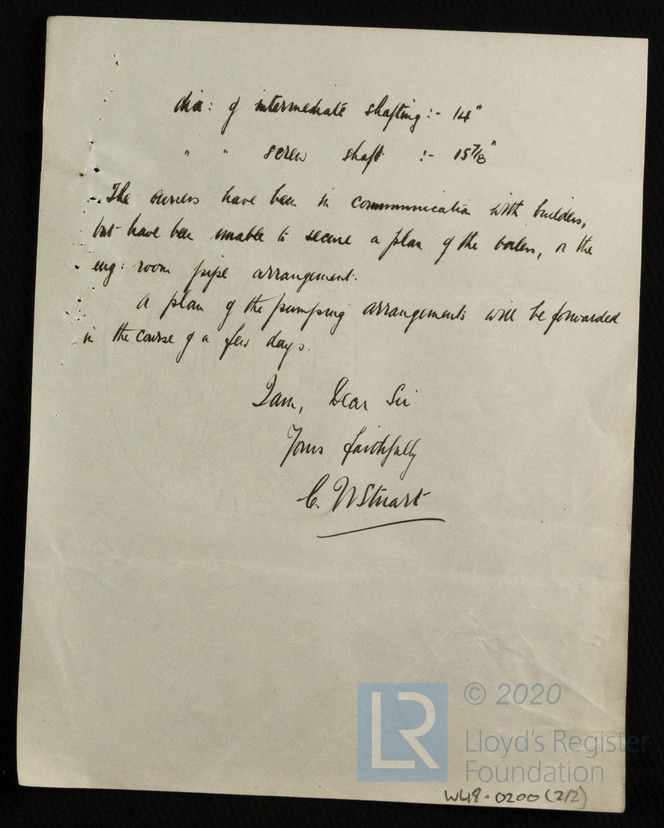 dia: of intermediate shafting:- 14"
" " screw shaft :- 15 7/8"
The owners have been in communication with builders,
but have been unable to secure a plan of the boilers, or the
eng: room pipe arrangement.
A plan of the pumping arrangements will be forwarded
in the course of a few days.
I am, Dear Sir
Yours faithfully
C. W Stuart
LR
© 2020
Lloyd's Register
Foundation
W48-0200 (2/2)